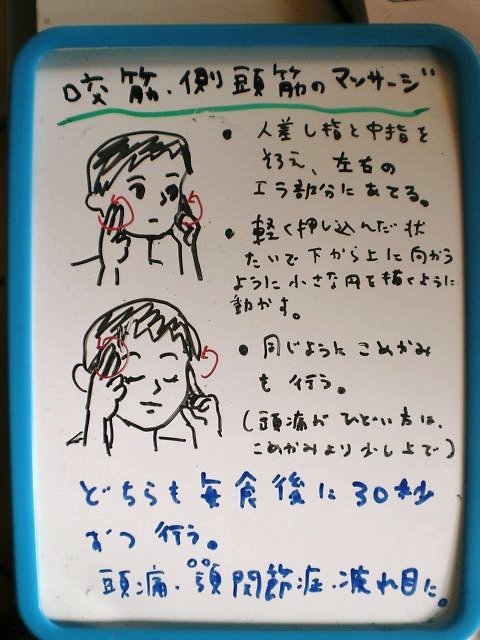 咬筋・側頭筋のマッサージ
・人差し指と中指を
そろえ、左右の
エラ部分にあてる。
・軽く押し込んだ状
たいで下から上に向かう
ように小さな円を描くように
動かす。
・同じようにこめかみ
も行う。
(頭痛がひどい方は、
こめかみより少し上で)
どちらも毎食後に30秒
ずつ行う。
頭痛・顎関節症・疲れ目に。